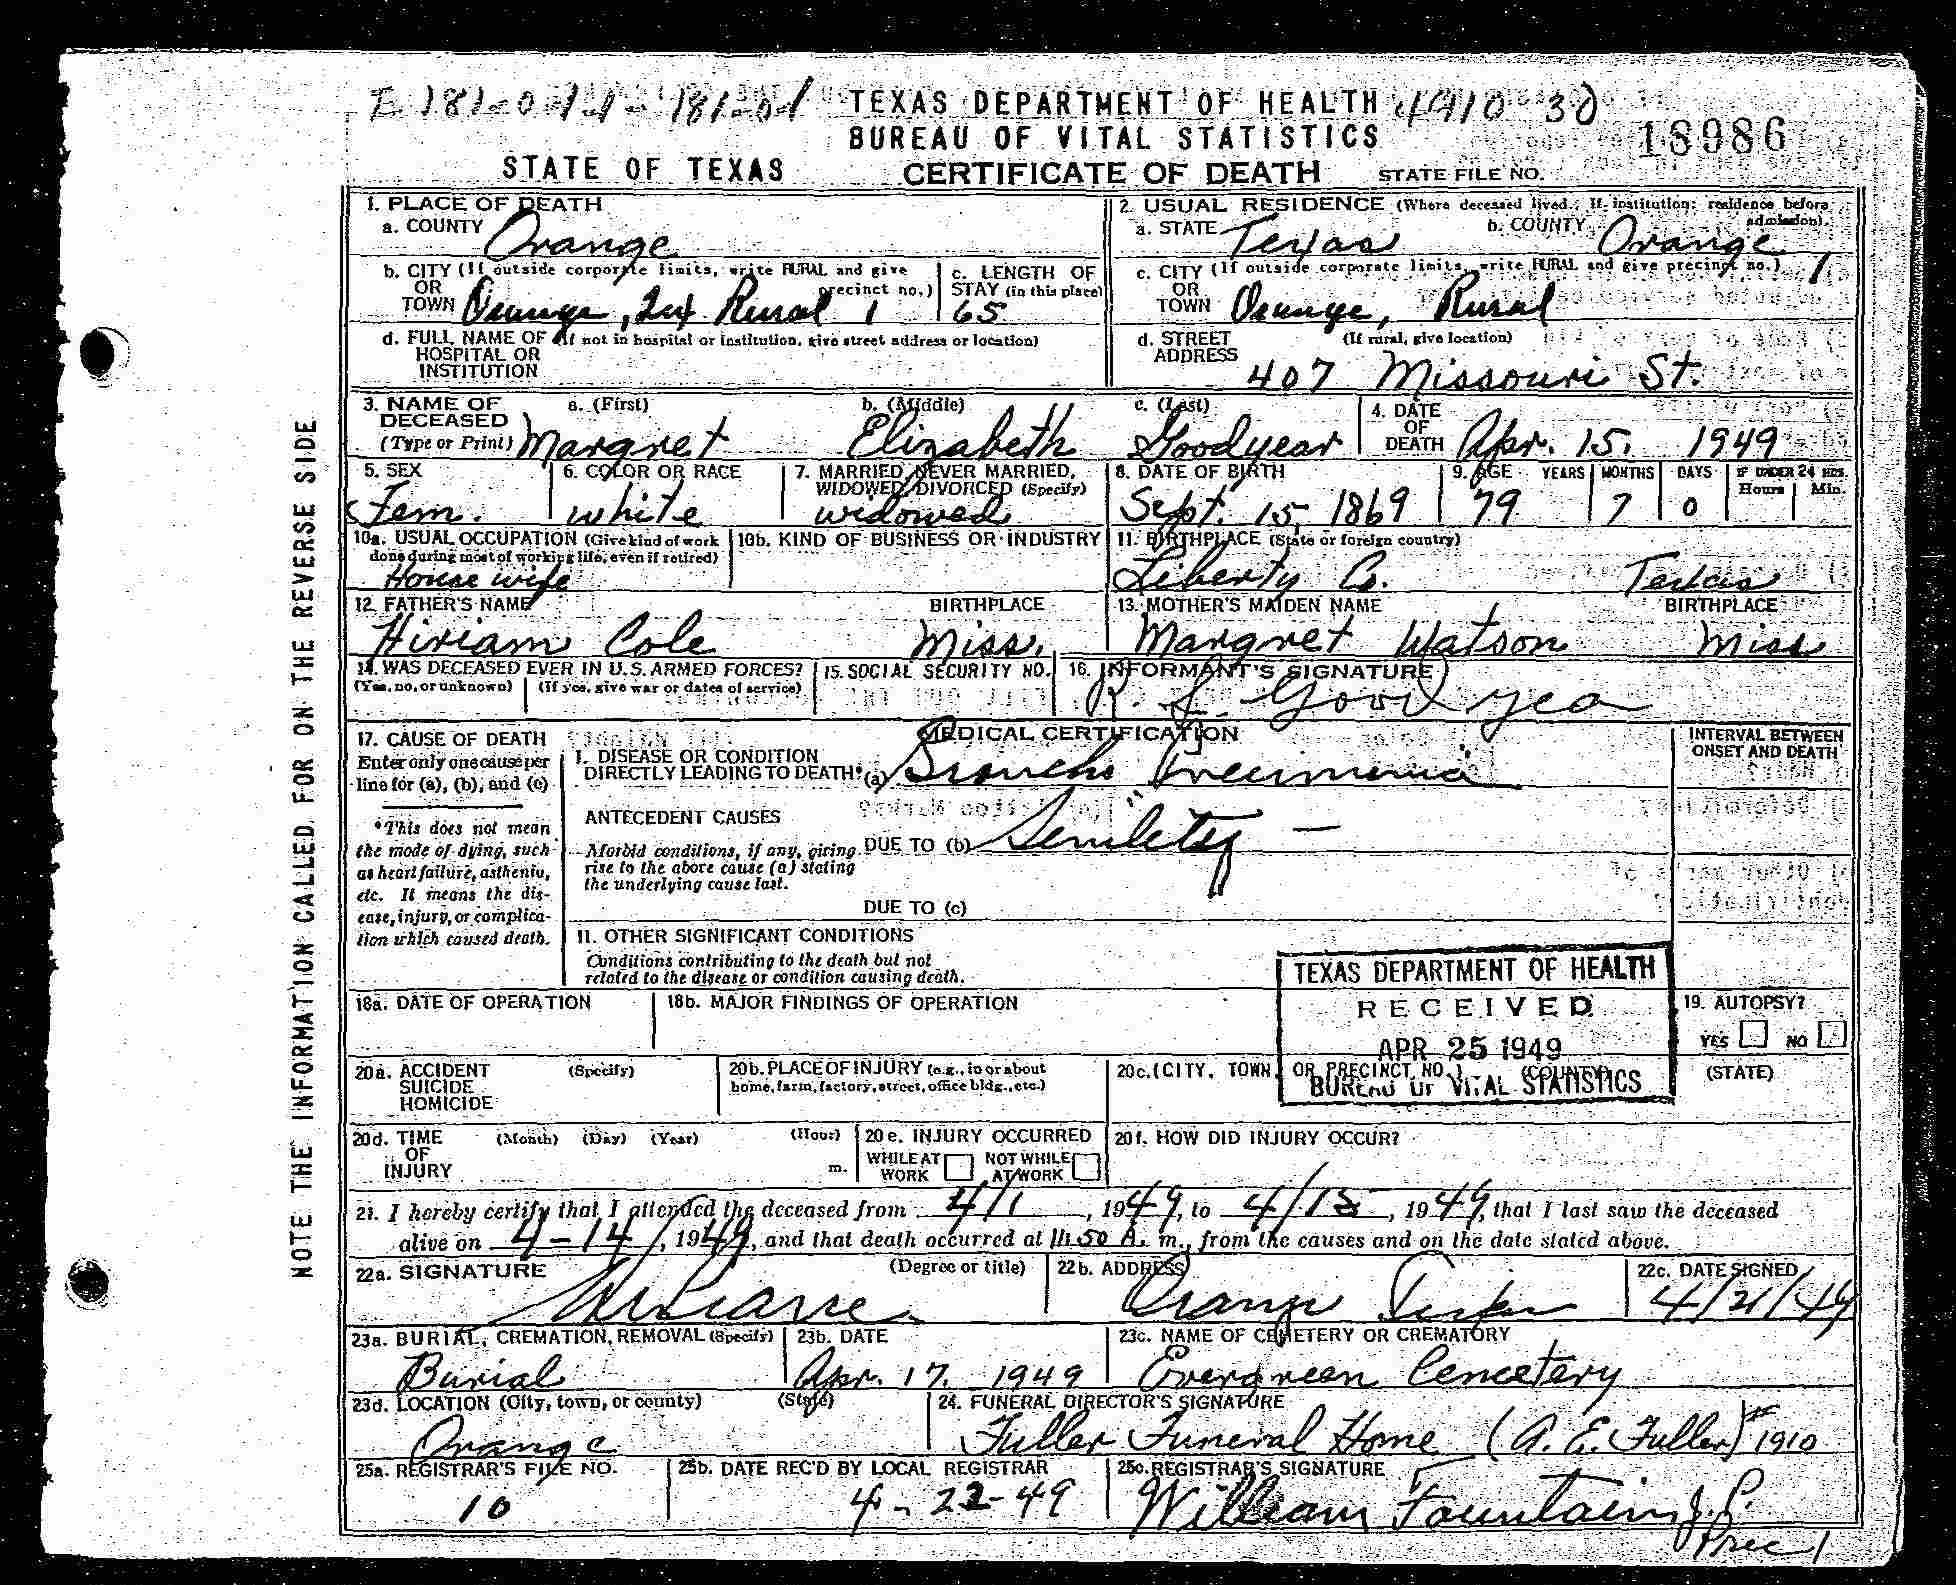 TEXAS DEPARTMENT OF HEALTH 4910 30
BUREAU OF VITAL STATISTICS 18986
STATE OF TEXAS CERTIFICATE OF DEATH STATE FILE NO.
NOTE THE INFORMATION CALLED FOR ON THE REVERSE SIDE
1. PLACE OF DEATH
a. COUNTY Orange
2. USUAL RESIDENCE (Where deceased lived. If institution: residence before admission).
a. STATE Texas b. COUNTY Orange
b. CITY (If outside corporate limits, write RURAL and give precinct no.)
OR
TOWN Orange, Tex Rural 1
c. LENGTH OF
STAY (in this place)
65
c. CITY (If outside corporate limits, write RURAL and give precinct no.) 1
OR
TOWN Orange, Rural
d. FULL NAME OF (If not in hospital or institution, give street address or location)
HOSPITAL OR
INSTITUTION
d. STREET (If rural, give location)
ADDRESS
407 Missouri St.
3. NAME OF a. (First) b. (Middle) c. (Last)
DECEASED
(Type or Print) Margret Elizabeth Goodyear
4. DATE
OF
DEATH Apr. 15. 1949
5. SEX
Fem.
6. COLOR OR RACE
white
7. MARRIED, NEVER MARRIED,
WIDOWED, DIVORCED (Specify)
widowed
8. DATE OF BIRTH
Sept. 15, 1869
9. AGE YEARS MONTHS DAYS IF UNDER 24 HRS.
Hours Min.
79 7 0
10a. USUAL OCCUPATION (Give kind of work
done during most of working life, even if retired)
House wife
10b. KIND OF BUSINESS OR INDUSTRY
11. BIRTHPLACE (State or foreign country)
Liberty Co. Texas
12. FATHER'S NAME BIRTHPLACE
Hiriam Cole Miss.
13. MOTHER'S MAIDEN NAME BIRTHPLACE
Margret Watson Miss
14. WAS DECEASED EVER IN U.S. ARMED FORCES?
(Yes, no, or unknown) (If yes, give war or dates of service)
15. SOCIAL SECURITY NO.
16. INFORMANT'S SIGNATURE
R. L. Good yea
MEDICAL CERTIFICATION
17. CAUSE OF DEATH
Enter only one cause per
line for (a), (b), and (c)
*This does not mean
the mode of dying, such
as heart failure, asthenia,
etc. It means the dis-
ease, injury, or complica-
tion which caused death.
I. DISEASE OR CONDITION
DIRECTLY LEADING TO DEATH* (a) Broncho Pneumonia
ANTECEDENT CAUSES
Morbid conditions, if any, giving
rise to the above cause (a) stating
the underlying cause last.
DUE TO (b) Senility —
DUE TO (c)
INTERVAL BETWEEN
ONSET AND DEATH
II. OTHER SIGNIFICANT CONDITIONS
Conditions contributing to the death but not
related to the disease or condition causing death.
TEXAS DEPARTMENT OF HEALTH
RECEIVED
APR 25 1949
BUREAU OF VITAL STATISTICS
18a. DATE OF OPERATION
18b. MAJOR FINDINGS OF OPERATION
19. AUTOPSY?
YES NO
20a. ACCIDENT (Specify)
SUICIDE
HOMICIDE
20b. PLACE OF INJURY (e.g., in or about
home, farm, factory, street, office bldg., etc.)
20c. (CITY, TOWN, OR PRECINCT NO.) (COUNTY) (STATE)
20d. TIME (Month) (Day) (Year) (Hour)
OF
INJURY m.
20e. INJURY OCCURRED
WHILE AT WORK NOT WHILE AT WORK
20f. HOW DID INJURY OCCUR?
21. I hereby certify that I attended the deceased from 4/1, 1949, to 4/15, 1949, that I last saw the deceased
alive on 4-14, 1949, and that death occurred at 11:50 A. m., from the causes and on the date stated above.
22a. SIGNATURE (Degree or title)
22b. ADDRESS
Orange Texas
22c. DATE SIGNED
4/21/49
23a. BURIAL, CREMATION, REMOVAL (Specify)
Burial
23b. DATE
Apr. 17. 1949
23c. NAME OF CEMETERY OR CREMATORY
Evergreen Cemetery
23d. LOCATION (City, town, or county) (State)
Orange
24. FUNERAL DIRECTOR'S SIGNATURE
Fuller Funeral Home (A. E. Fuller) # 1910
25a. REGISTRAR'S FILE NO.
10
25b. DATE REC'D BY LOCAL REGISTRAR
4-22-49
25c. REGISTRAR'S SIGNATURE
William Fountain J. P.
Prec 1